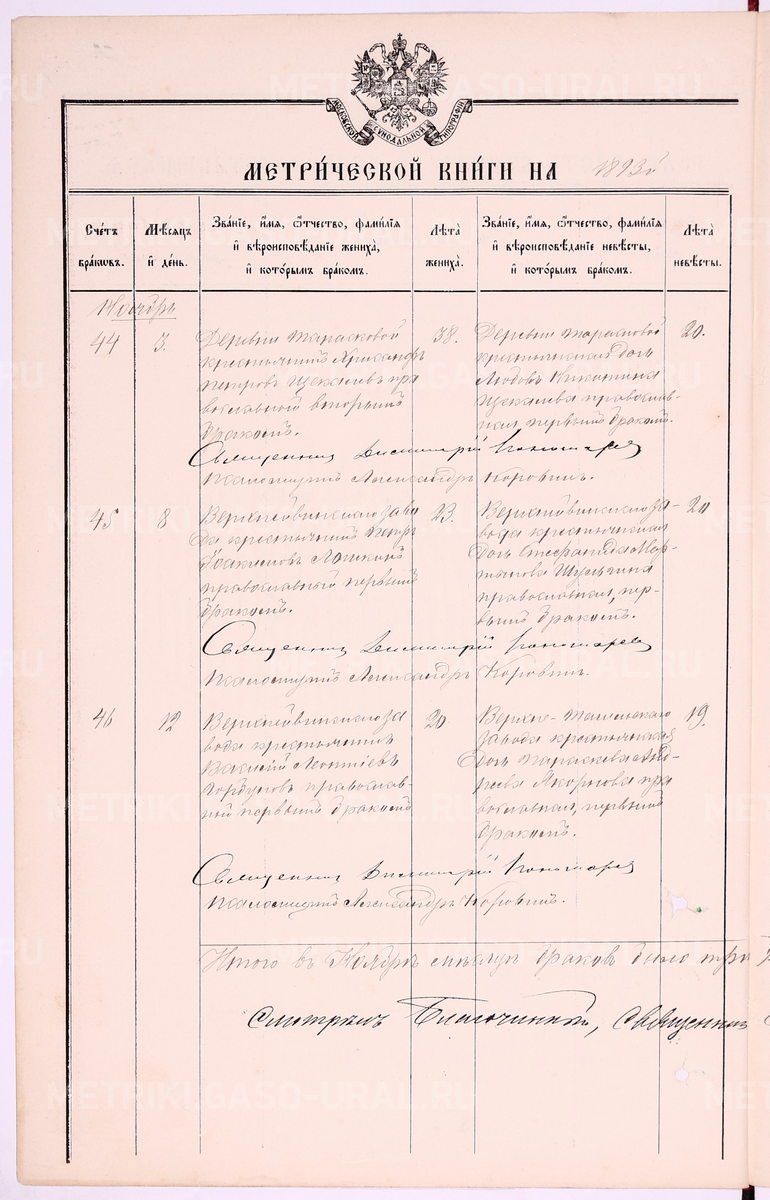 МОСКОВСКОЙ СѴНОДАЛЬНОЙ ТИПОГРАФІИ
МЕТРИ́ЧЕСКОЙ КНИ́ГИ НА 1893й
Сче́тъ бра́кѡвъ.
Мѣ́сяцъ и҆ де́нь.
Зва́нїе, и҆́мѧ, ѻ҆́тчество, фамı́лїѧ
и҆ вѣроисповѣ́данїе жениха̀,
и҆ кото́рымъ бра́комъ.
Лѣ́та жениха̀.
Зва́нїе, и҆́мѧ, ѻ҆́тчество, фамı́лїѧ
и҆ вѣроисповѣ́данїе невѣ́сты,
и҆ кото́рымъ бра́комъ.
Лѣ́та невѣ́сты.
Ноябрь
44 3.
Деревни Тарасковой
крестьянинъ
Петровъ Щекалевъ пра
вославный вторымъ
бракомъ.
38.
Деревни Тарасковой
крестьянская дочь
Любовь Никитина
Щекалева православ-
ная первымъ бракомъ.
20.
Священникъ Димитрій Пономарев
Псаломщикъ Александръ Коровинъ.
45 8
Верхнейвинскаго заво
да крестьянинъ Петръ
православный первымъ
бракомъ.
23.
Верхнейвинскаго за-
вода крестьянская
дочь Стефанида Мар-
Шульгина
православная, пер-
вымъ бракомъ.
20
Священникъ Димитрій Пономарев
Псаломщикъ Александръ Коровинъ.
46 12
Верхнейвинскаго за
вода крестьянинъ
Василій Леонтіевъ
Горбуновъ православ-
ный первымъ бракомъ
20.
Верхне-Тагильскаго
завода крестьянская
дочь Параскева Анд-
реева пра
вославная, первымъ
бракомъ.
19.
Священникъ Димитрій Пономарев
Псаломщикъ Александръ Коровинъ.
Итого въ Ноябрѣ мѣсяцѣ браков было три
Смотрѣлъ Благочинный, Священникъ
METRIKI.GASO-URAL.RU